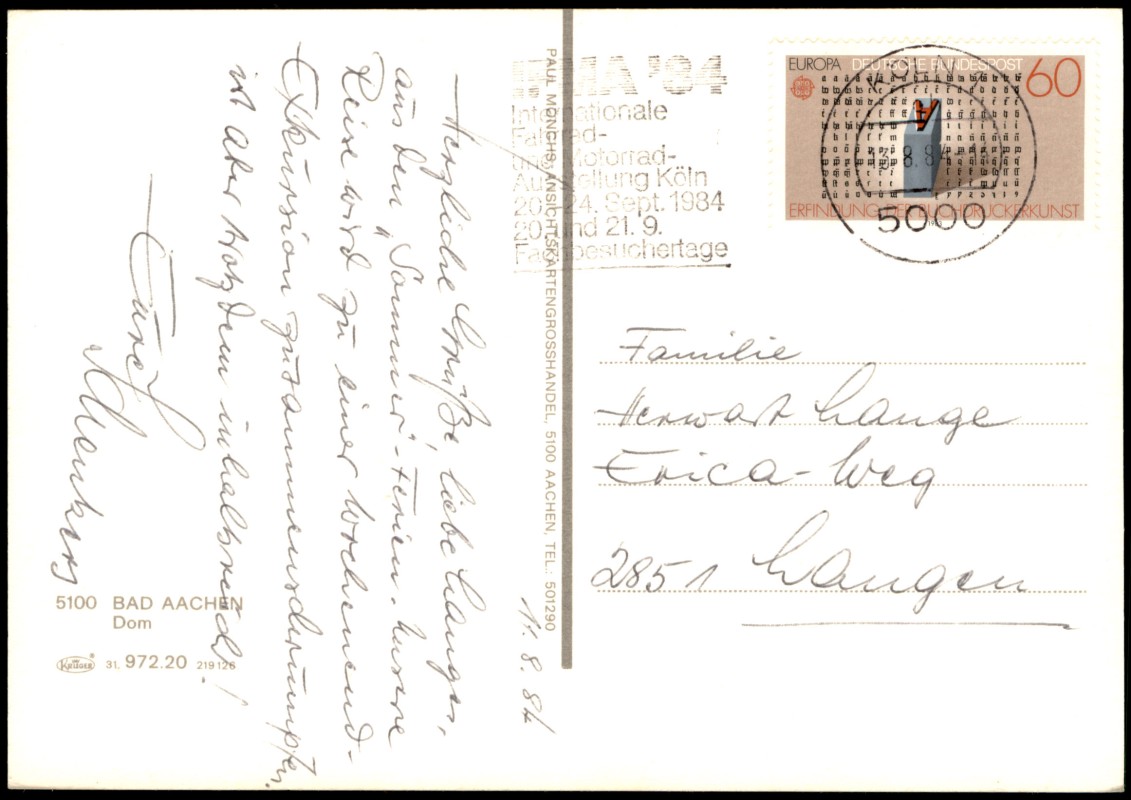 11.8.84
Herzliche Grüße, liebe Langes,
aus den "Sommer"-Ferien. Unsere
Reise wird zu einer Wochenend-
Exkursion zusammenschrumpfen,
ist aber trotzdem inhaltsreich!
Eure
5100 BAD AACHEN
Dom
KRÜGER
31. 972.20 219126
PAUL MONCHS, ANSICHTSKARTENGROSSHANDEL, 5100 AACHEN, TEL.: 501290
IFMA '84
Internationale
Fahrrad-
und Motorrad-
Ausstellung Köln
20.-24. Sept. 1984
20. und 21. 9.
Fachbesuchertage
EUROPA DEUTSCHE BUNDESPOST 60
ERFINDUNG DER BUCHDRUCKERKUNST
KÖLN
13.8.84
5000
Familie
Herwart Lange
Erica-Weg
2851 Langen